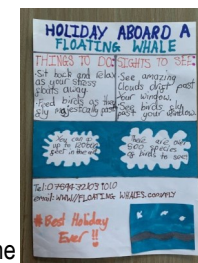 HOLIDAY ABOARD A
FLOATING WHALE
THINGS TO DO
Sit back and relax
as your stress
floats away
Feed birds as they
fly majestically past
SIGHTS TO SEE
See amazing
Clouds drift past
your window
See birds fly
past your windows
You can go
up to
feet in the
There are over
800 species
of birds to
Tel:
email: WWW/FLOATING WHALES.com
#Best Holiday
Ever !!
ne